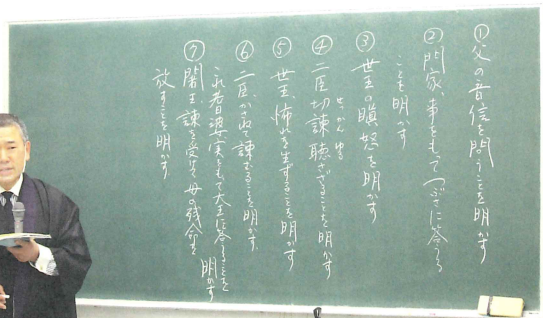 ①父の音信を問うことを明かす
②門家、事をもってつぶさに答うる
ことを明かす
③世王の瞋怒を明かす
せっかん ゆる
④二臣切諫聴さざることを明かす
⑤世王、怖れを生ずることを明かす
⑥二臣、かさねて諫むることを明かす
耆婆実をもて大王に答することを明かす
⑦闍王諫を受けて母の残命を
放すことを明かす